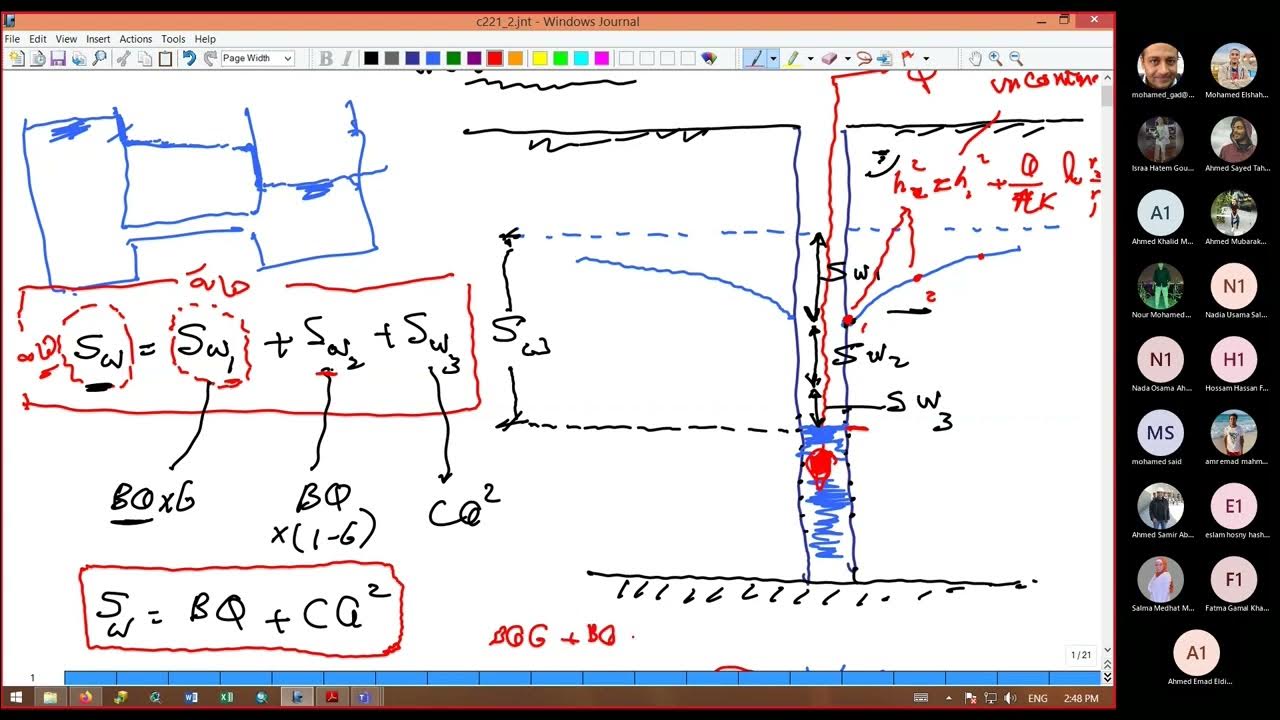 c221_2.jnt - Windows Journal
File Edit View Insert Actions Tools Help
Page Width
B I
Q
h₂² = h₁² + Q/πK ln r₂/r₁
1
2
S w₁
S w₂
S w₃
S w
S w = S w₁ + S w₂ + S w₃
BQ×G
BQ
×(1-G)
CQ²
S w = BQ + CQ²
BQG + BQ
1 / 21
1
ENG 2:48 PM
mohamed_gad@...
Mohamed Elshah...
Israa Hatem Gou...
Ahmed Sayed Tah...
A1
Ahmed Khalid M...
Ahmed Mubarak...
Nour Mohamed...
N1
Nadia Usama Sal...
N1
Nada Osama Ah...
H1
Hossam Hassan F...
MS
mohamed said
amr emad mahm...
Ahmed Samir Ab...
E1
eslam hosny hash...
Salma Medhat M...
F1
Fatma Gamal Kha...
A1
Ahmed Emad Eldi...